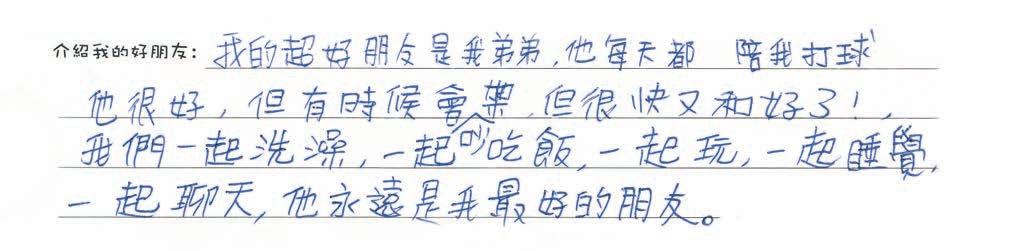 介紹我的好朋友：我的超好朋友是我弟弟，他每天都 陪我打球，
他很好，但有時候會吵架，但很快又和好了！
我們一起洗澡，一起吃飯，一起玩，一起睡覺，
一起聊天，他永遠是我最好的朋友。